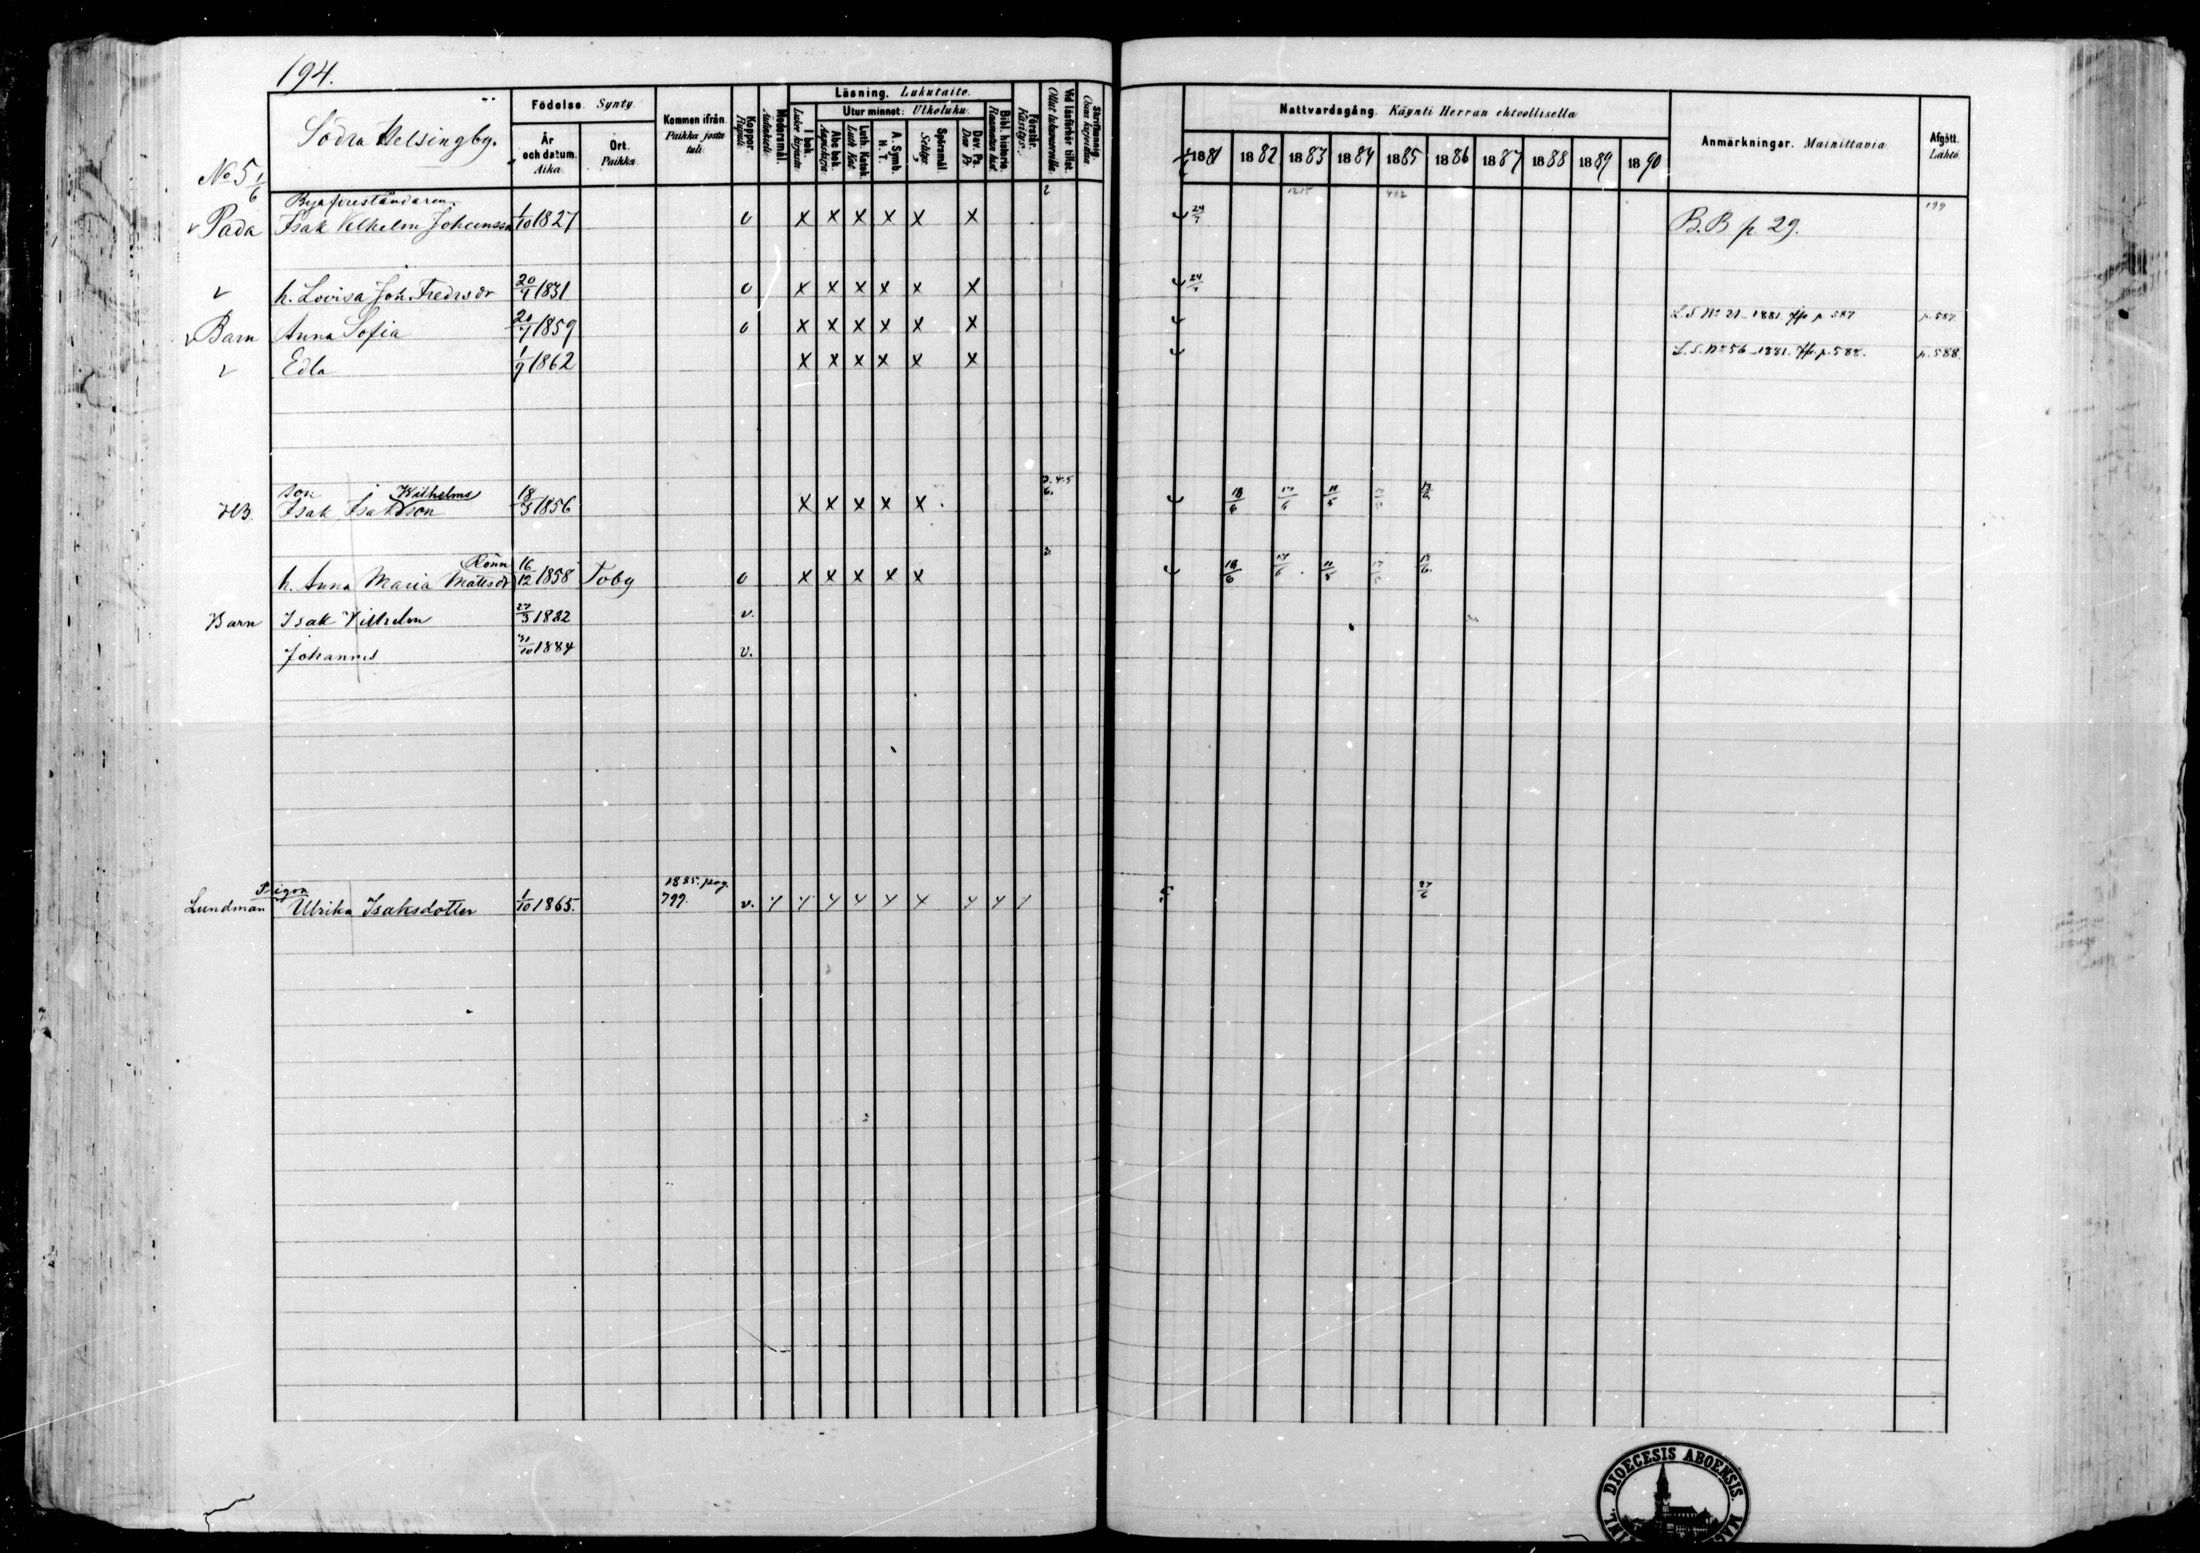 194.
Södra Helsingby.
Födelse. Synty.
År och datum. Aika.
Ort. Paikka.
Kommen ifrån. Paikka josta tuli.
Koppor. Rupuli.
Modersmål.
Läsning. Lukutaito.
I bok.
Utur minnet: Ulkoluku.
Abc bok.
Luth. Katek.
A. Symb. H. T.
Spörsmål.
Dav. Ps.
Bibl. historia.
Förstår. Käsitys.
Vid läsförhör tillst.
Skriftkunnig.
Nattvardsgång. Käynti Herran ehtoollisella
1881 1882 1883 1884 1885 1886 1887 1888 1889 1890
Anmärkningar. Mainittavia
Afgått. Lähtö.
No 5 1/6
Byaföreståndaren
Pada Isak Vilhelm Johansson 1/10 1827 v x x x x x x 24/7 B.B p. 29. 199
h. Lovisa Joh. Fredrsdr 20/9 1831 v x x x x x x 24/7
Barn Anna Sofia 20/7 1859 v x x x x x x L.S No 21 1881 p 587 p. 587.
Edla 1/9 1862 x x x x x x L.S. No 56 1881. p. 588. p. 588.
son Wilhelms
Isak Isaksson 18/5 1856 x x x x x 18/6 17/6 11/5
Rönn
h. Anna Maria Mattsdr 16/12 1858 Toby v x x x x x 18/6 17/6 11/5
Barn Isak Vilhelm 27/3 1882 v.
Johannes 31/10 1884 v.
Pigan 1885. pag.
Lundman Ulrika Isaksdotter 1/10 1865. 799. v. 27/6
DIOECESIS ABOENSIS.